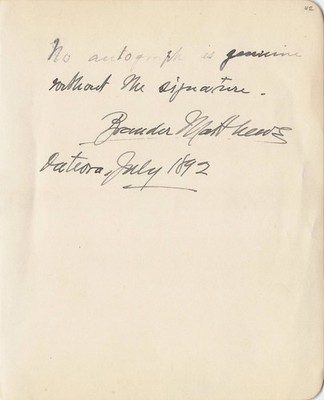 42
No autograph is genuine
without the signature.
Brander Matthews
Onteora, July 1892